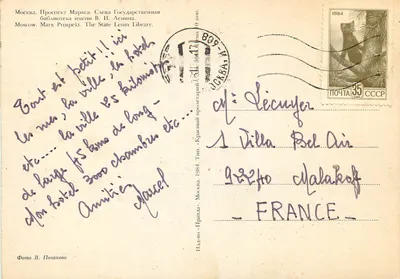 Москва. Проспект Маркса. Слева Государственная
библиотека имени В. И. Ленина.
Moscow. Marx Prospekt. The State Lenin Library.
Tout est petit!! ici
les rues, la ville, les hotels
etc.... la ville 25 kilomètres
de large 45 kms de long -
Mon hôtel 3000 chambres etc...
Amitiés
Marcel
Фото В. Полякова
Изд-во «Правда». Москва. 1984. Тип. «Красный пролетарий»
1984
ПОЧТА 35 СССР
МОСКВА
Mr Lécuyer
1 Villa Bel Air
92240 Malakoff
- FRANCE -